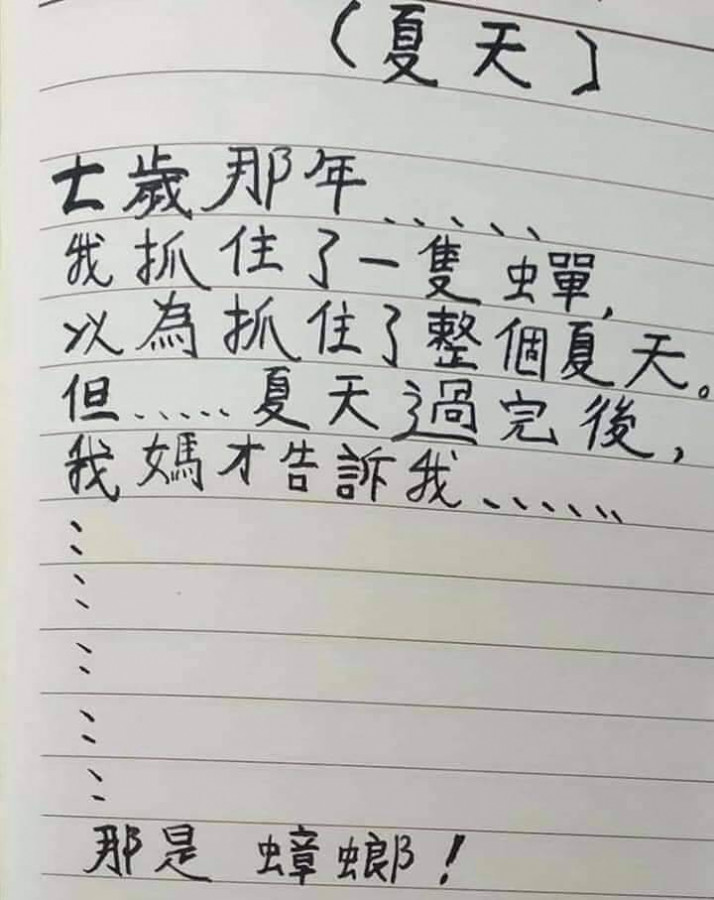 （夏天）
七歲那年、、、、、
我抓住了一隻蟬，
以為抓住了整個夏天。
但、、、、、夏天過完後，
我媽才告訴我、、、、、、
：
：
：
：
：
那是蟑螂！